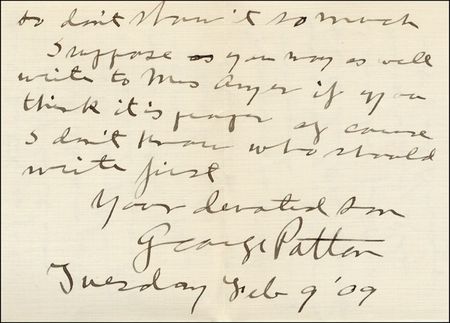 to don't show it so much
I suppose as you may as well
write to Mrs Ayer if you
think it is proper of course
I don't know who should
write first
Your devoted son
George Patton
Tuesday Feb 9 '09